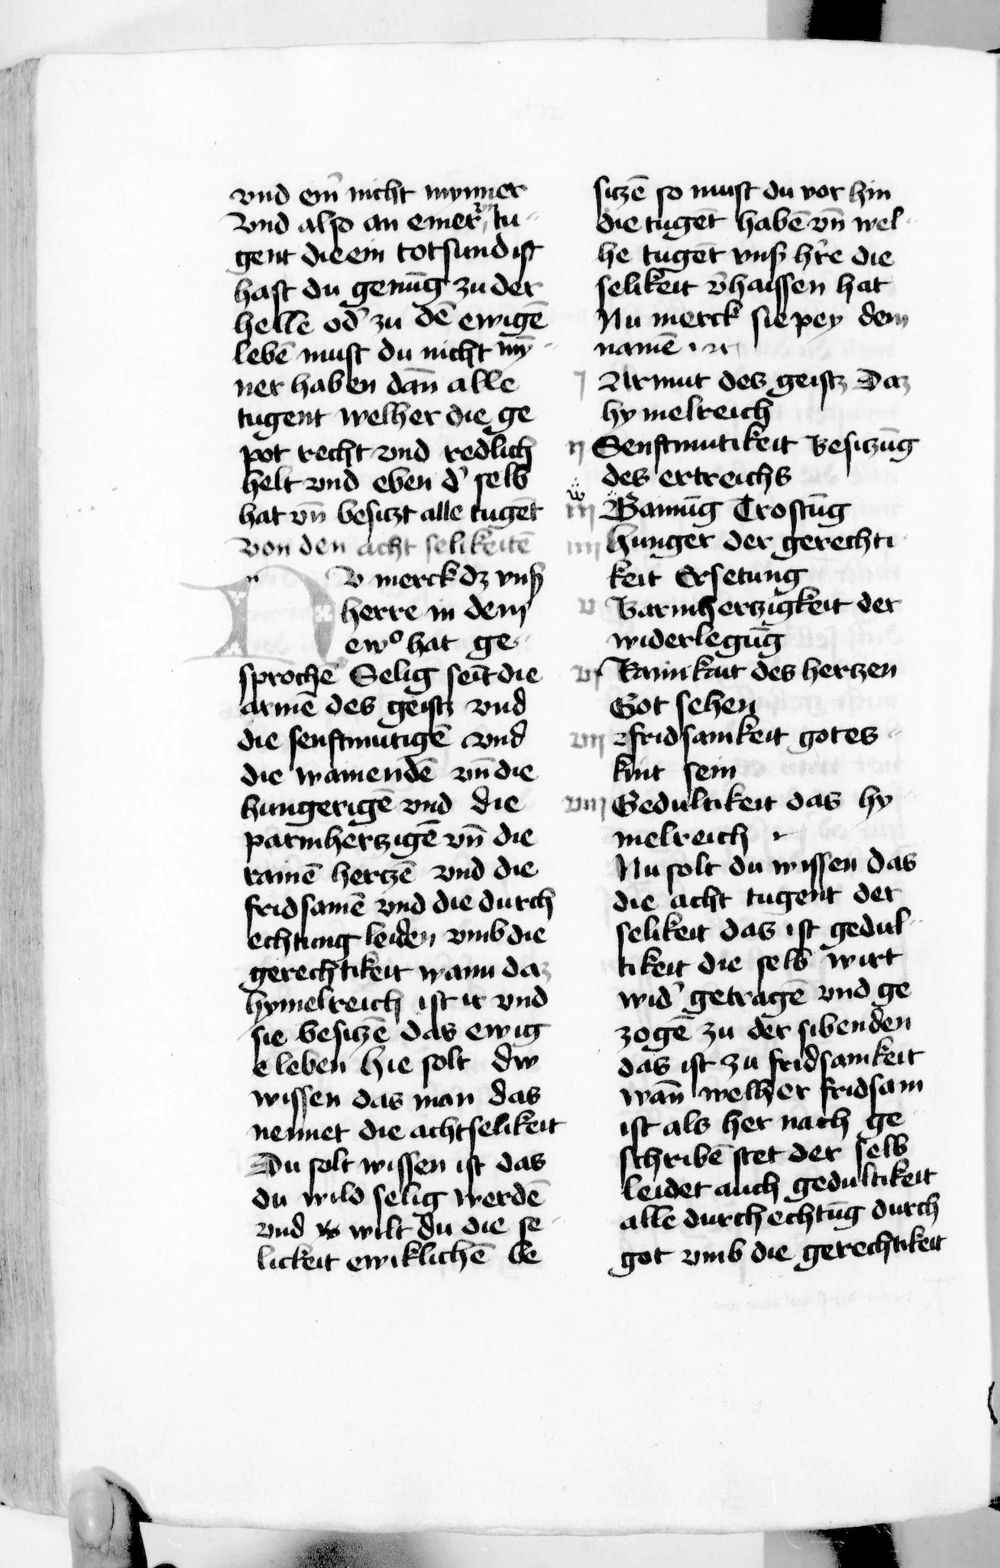 vnd ein᷑ nicht mynner
Vnd also an einer vn tu
gent die ein totsund ist
hast du genūg zu der
helle od᷑ zu dē ewigē
lebē must du nicht my̅
ner haben dan̅ alle
tugent welher die ge
pot recht vnd redlich
helt vnd eben d᷑ selb
hat vn̅ besiczt alle tugēt
Von den acht selikeitē
NV merck dz vnß
herre in dem
ewo hat ge
sprochē Selig seīt die
armē des geistz vnd
die senftmutigē vnd
die wainendē vn̅ die
hungerigē vnd die
parmherczigē vn̅ die
rainē herczē vnd die
fridsamē vnd die durch
echtung leiden vmb die
gerechtikeit wann daz
hymelreich ist ir vnd
sie besiczē das ewig
e leben hie solt dw
wissen das man das
nennet die acht selikeit
Du solt wissen ist das
du wild selig werdē
vnd wilt du die se
lickeit ewiklichē be
siczē so must du vor hin
die tugēt habē vn̅ wel
he tugēt vnß h᷑re die
selikeit v᷑haissen hat
Nu merck sie pey dem
namē
j Armut des geistz Daz
hymelreich
ij Senftmutikeit Besiczūg
des ertreichs
iij Wainūg Trostūg
iiij Hunger der gerechti
keit Ersetung
v Barmherczigkeit der
widerlegūg
vj Rainkait des herczen
Got sehen
vij fridsamkeit gotes
kint sein
viij Gedultikeit das hy
melreich
Nu solt du wissen das
die acht tugent der
selikeit das ist gedul
tikeit die selb wirt
wid᷑ getragē vnd ge
zogē zu der sibenden
das ist zu fridsamkeit
wan̅ welher fridsam
ist als her nach ge
schribē stet der selb
leidet auch gedultikeit
alle durchechtūg durch
got vmb die gerechtikeit